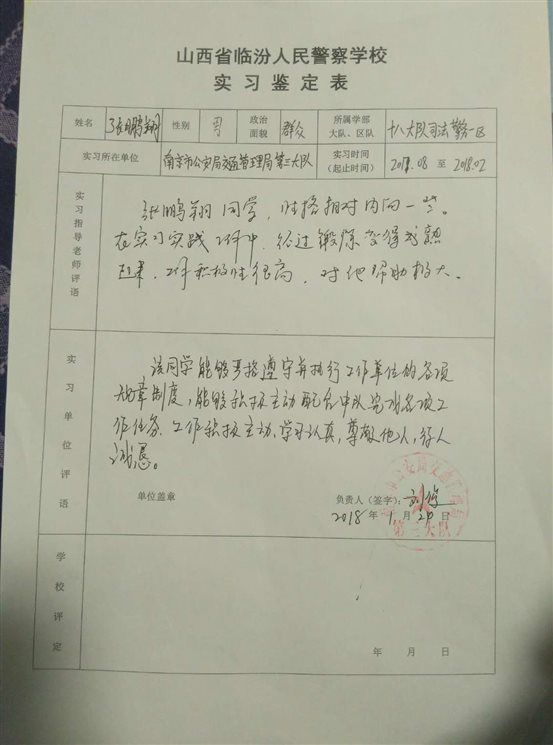 山西省临汾人民警察学校
实习鉴定表
姓名 张鹏翔 性别 男 政治面貌 群众 所属学部大队、区队 十八大队司法警务一区
实习所在单位 南京市公安局交通管理局第三大队 实习时间（起止时间） 2018.08 至 2018.02
实习指导老师评语
张鹏翔同学，性格相对内向一些。
在实习实践工作中，经过锻炼变得成熟
起来，工作积极性很高，对他帮助极大。
实习单位评语
该同学能够严格遵守并执行工作单位的各项
规章制度，能够积极主动配合中队完成各项工
作任务。工作积极主动、学习认真，尊敬他人，待人
诚恳。
单位盖章 负责人（签字）：刘
2018年1月20日
第三大队
学校评定
年 月 日